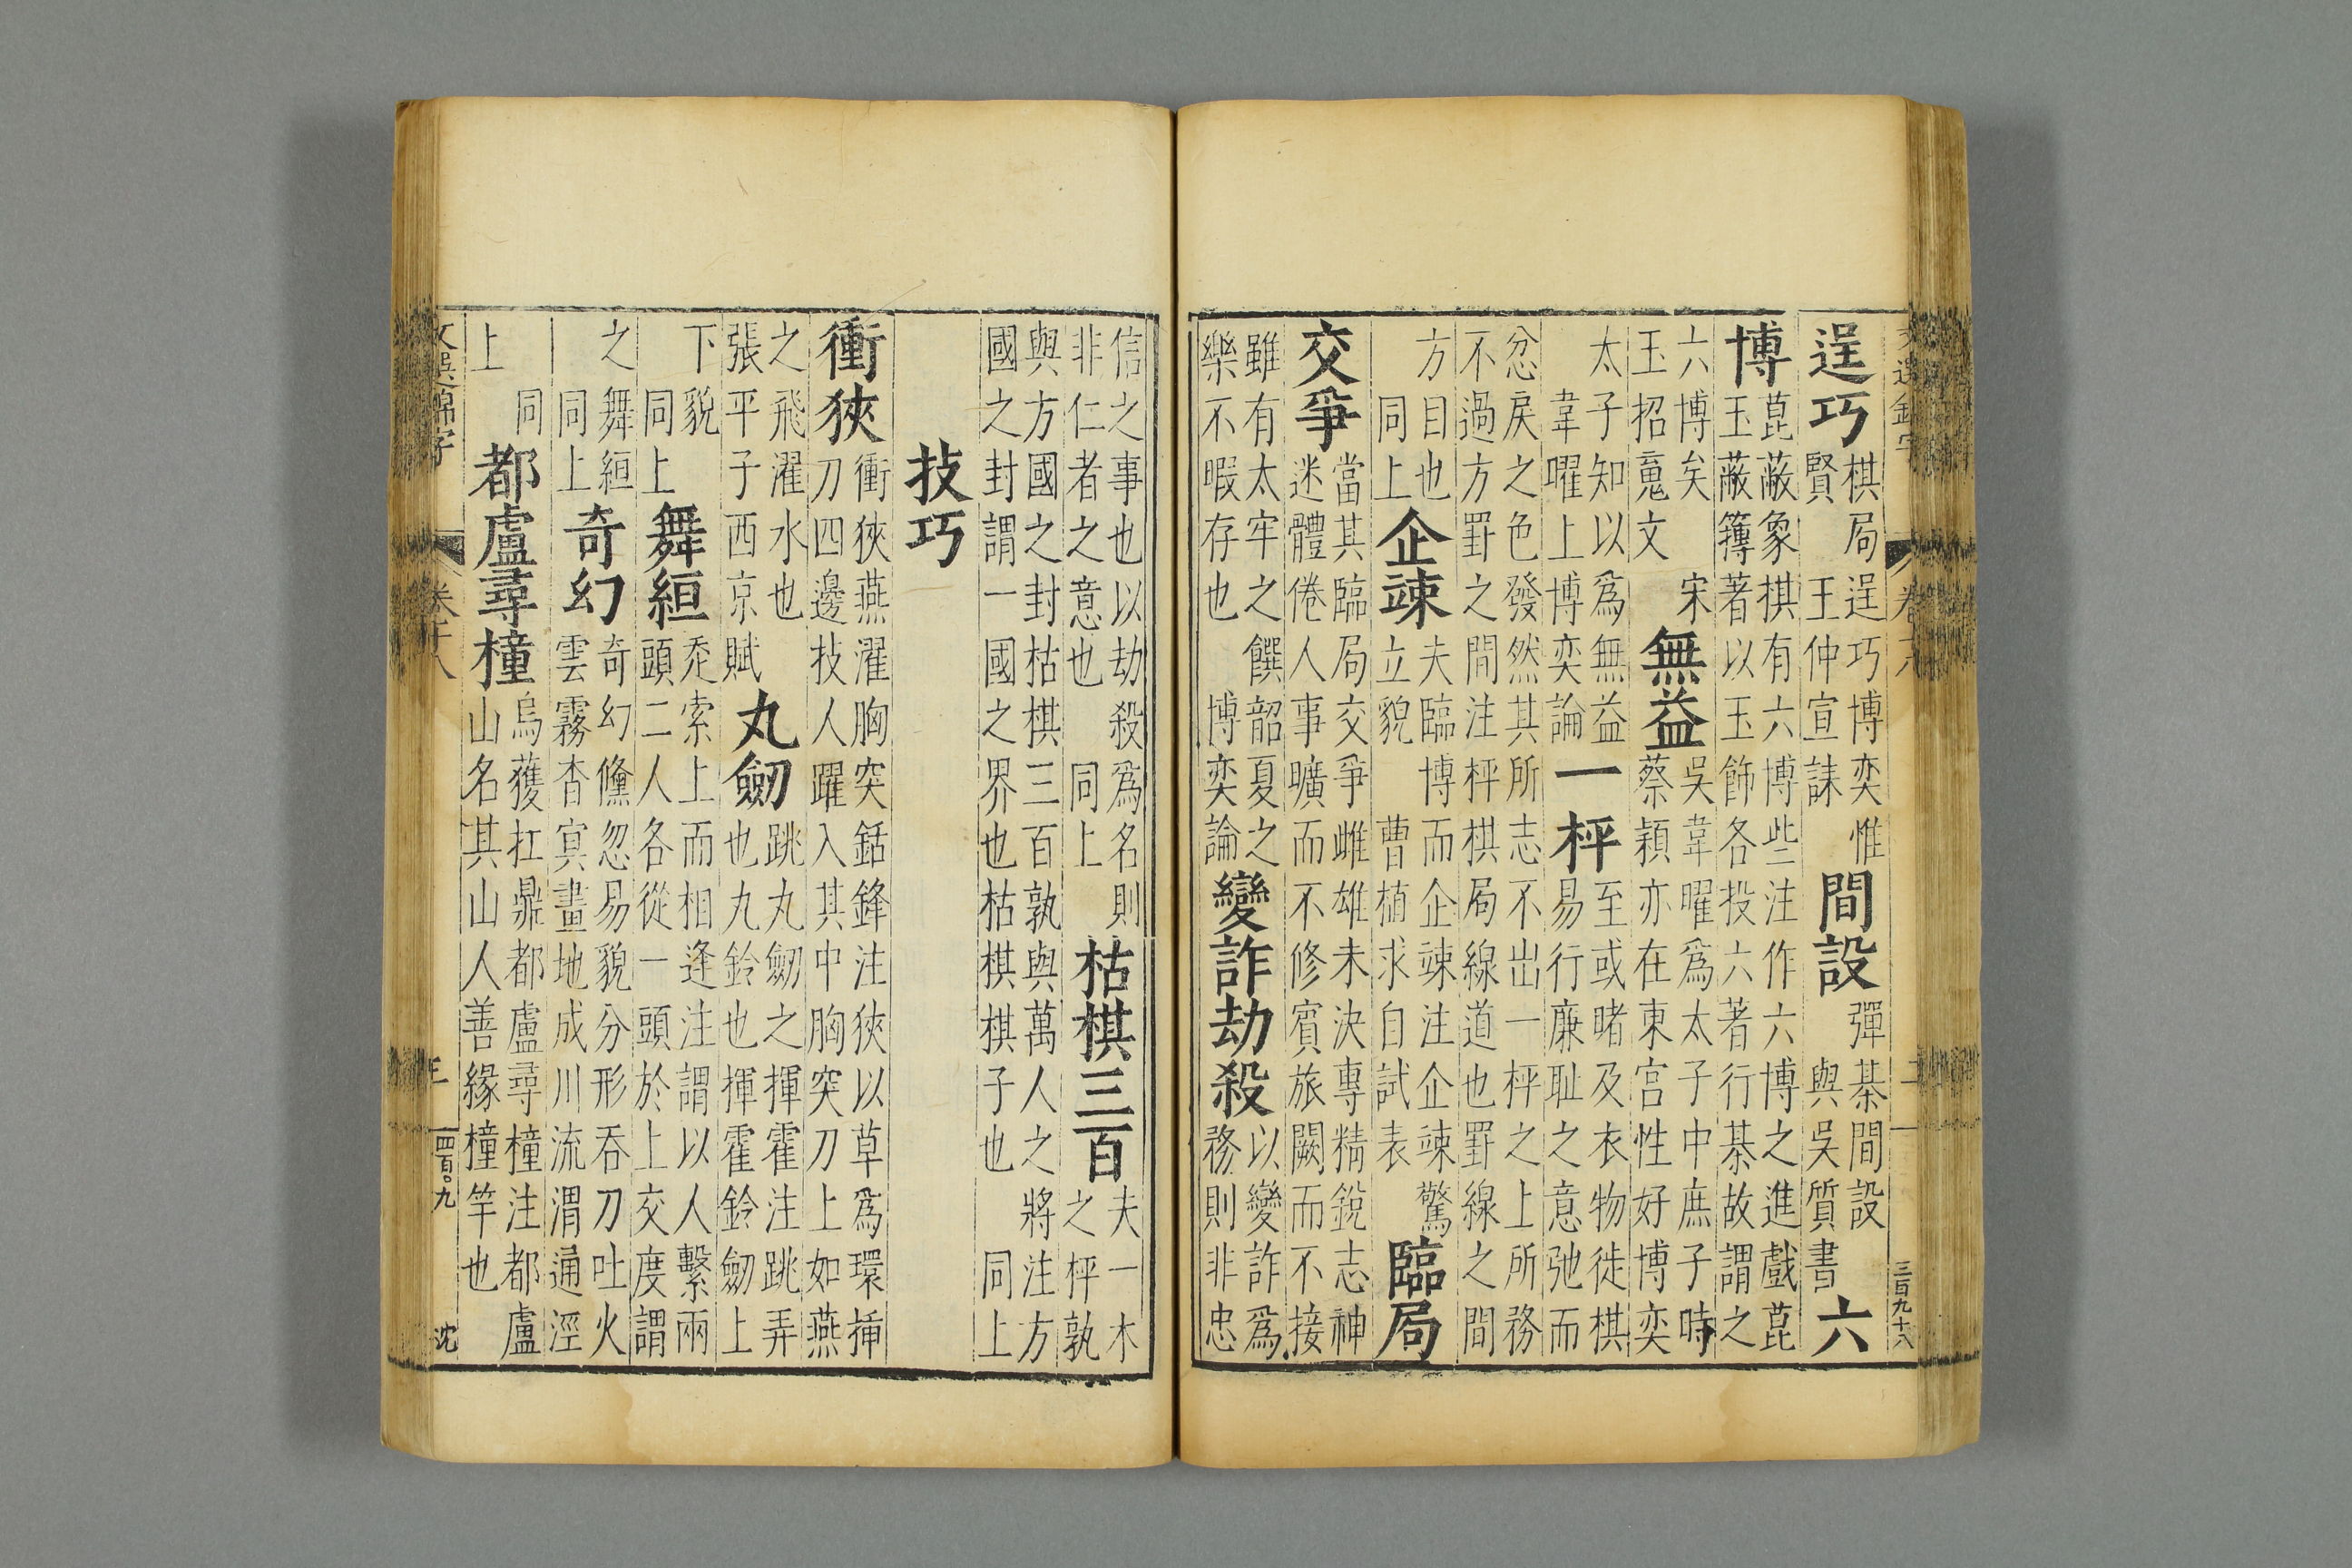 文選錦字 卷十八 二 三百九十八
逞巧
棋局逞巧博奕惟
賢 王仲宣誄
間設
彈棊間設
與吳質書
六
博
菎蔽象棋有六博些注作六博之進戲菎
玉蔽簙著以玉飾各投六著行棊故謂之
六博矣 宋
玉招䰟文
無益
吳韋曜爲太子中庶子時
蔡穎亦在東宮性好博奕
太子知以爲無益
韋曜上博奕論
一枰
至或睹及衣物徙棋
易行廉耻之意弛而
忿戾之色發然其所志不出一枰之上所務
不過方罫之間注枰棋局線道也罫線之間
方目也
同上
企竦
夫臨博而企竦注企竦驚
立貌 曹植求自試表
臨局
交爭
當其臨局交爭雌雄未決專精銳志神
迷體倦人事曠而不修賓旅闕而不接
雖有太牢之饌韶夏之
樂不暇存也 博奕論
變詐劫殺
以變詐爲
務則非忠
信之事也以劫殺爲名則
非仁者之意也 同上
枯棋三百
夫一木
之枰孰
與方國之封枯棋三百孰與萬人之將注方
國之封謂一國之界也枯棋棋子也 同上
技巧
衝狹
衝狹燕濯胸突銛鋒注狹以草爲環揷
刀四邊技人躍入其中胸突刀上如燕
之飛濯水也
張平子西京賦
丸劒
跳丸劒之揮霍注跳弄
也丸鈴也揮霍鈴劒上
下貌
同上
舞絙
索上而相逢注謂以人繫兩
頭二人各從一頭於上交度謂
之舞絙
同上
奇幻
奇幻儵忽易貌分形吞刀吐火
雲霧杳冥畫地成川流渭通涇
同
上
都盧尋橦
烏獲扛鼎都盧尋橦注都盧
山名其山人善緣橦竿也
文選錦字 卷十八 三 四百〇九 沈